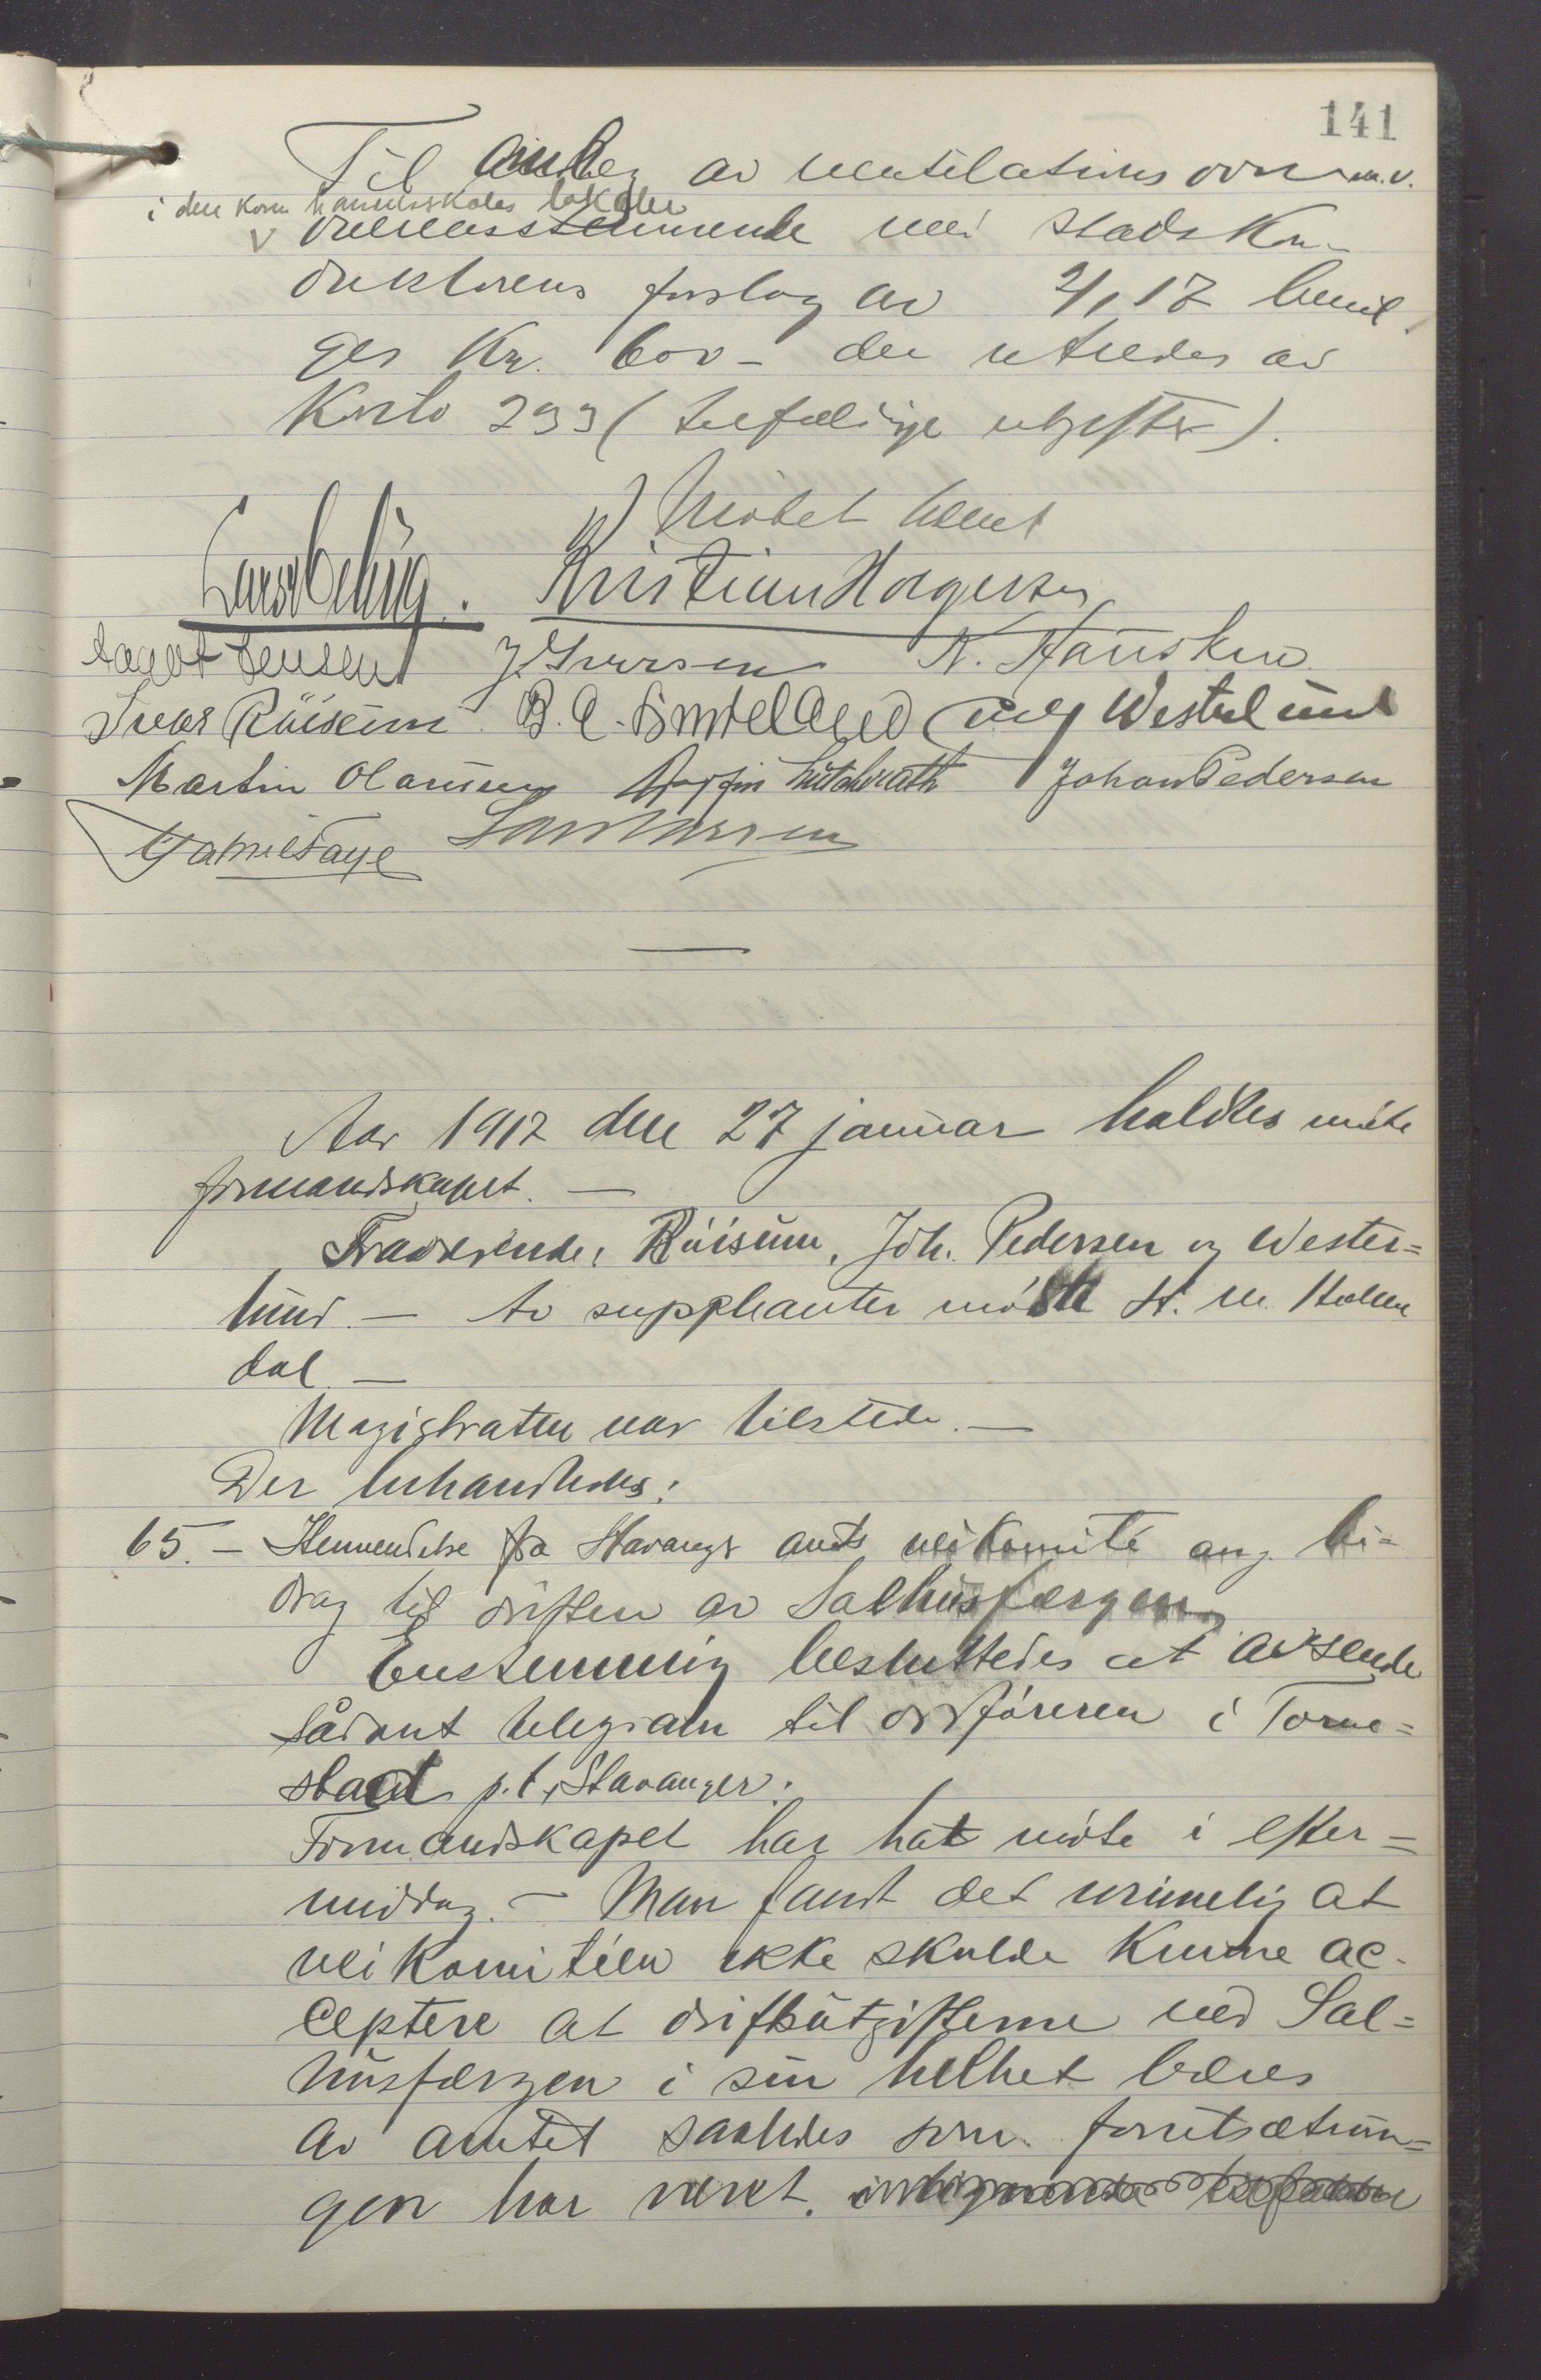 141
Til anlæg av ventilationsovn m.v.
i den kom handelsskoles lokaler
overensstemmende med stadskon-
duktørens forslag av 2/1 17 bevil
ges kr. 600 - der utredes av
Konto 299 (tilfældige utgifter).
Møtet hævet
Kristian Haagensen
J. Iversen N. Hausken
Ivar Röisum B. A. Smedelund Westerlund
Martin Olaussen Johan Pedersen
Gabriel Faye
Aar 1917 den 27 januar holdtes møte
formandskapet. —
Fraværende: Röisum, Joh. Pedersen og Wester=
lund. — Av supplianter møtte H. M. Holmen
dal —
Magistraten var tilstede. —
Der behandledes:
65. — Henvendelse fra Stavanger amts veikomité ang. bi-
drag til driften av Salhusfærgen
Enstemmig besluttedes at avsende
sådant telegram til ordføreren i Torve=
stad p.t. Stavanger:
Formandskapet har hat møte i efter=
middag. — Man fandt det urimelig at
veikomitéen ikke skulde kunne ac-
ceptere at driftsutgifterne ved Sal=
husfærgen i sin helhet bæres
av amtet saaledes som forutsætnin=
gen har været.